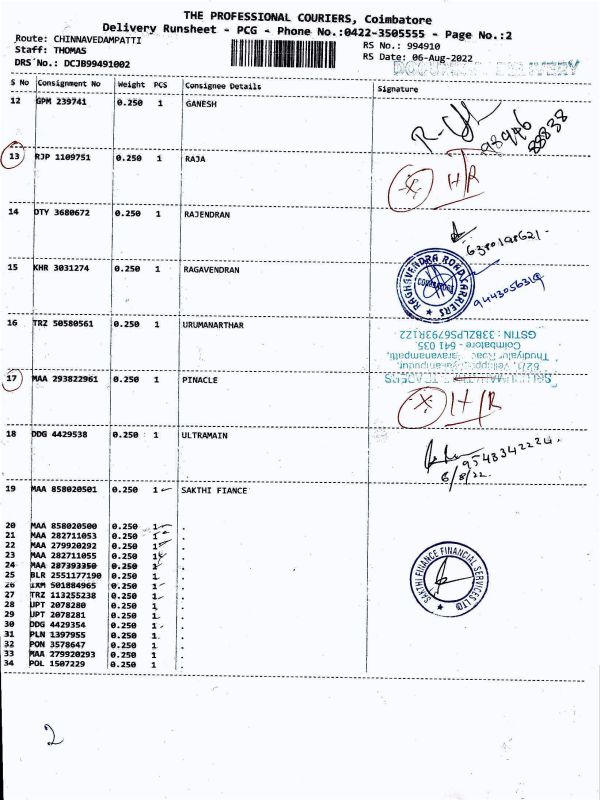 THE PROFESSIONAL COURIERS, Coimbatore
Delivery Runsheet - PCG - Phone No.:0422-3505555 - Page No.:2
Route: CHINNAVEDAMPATTI
RS No.: 994910
Staff: THOMAS
RS Date: 06-Aug-2022
DRS No.: DCJB99491002
DELIVERY
S No Consignment No Weight PCS Consignee Details Signature
12 GPM 239741 0.250 1 GANESH
98946
88838
13 RJP 1109751 0.250 1 RAJA
14 DTY 3680672 0.250 1 RAJENDRAN
6380198621-
15 KHR 3031274 0.250 1 RAGAVENDRAN
RAGHAVENDRA ROAD CARRIERS
COIMBATORE
9443056319
16 TRZ 50580561 0.250 1 URUMANARTHAR
GSTIN : 33BZLPS6793R1Z2
Coimbatore - 641 035
Thudiyalur Road, Saravanampatti,
17 MAA 293822961 0.250 1 PINACLE
18 DDG 4429538 0.250 1 ULTRAMAIN
9548342224.
6/8/22.
19 MAA 858020501 0.250 1 SAKTHI FIANCE
20 MAA 858020500 0.250 1 .
21 MAA 282711053 0.250 1 .
22 MAA 279920292 0.250 1 .
23 MAA 282711055 0.250 1 .
24 MAA 287393350 0.250 1 .
25 BLR 2551177190 0.250 1 .
26 IXM 501884965 0.250 1 .
27 TRZ 113255238 0.250 1 .
28 UPT 2078280 0.250 1 .
29 UPT 2078281 0.250 1 .
30 DDG 4429354 0.250 1 .
31 PLN 1397955 0.250 1 .
32 PON 3578647 0.250 1 .
33 MAA 279920293 0.250 1 .
34 POL 1507229 0.250 1 .
SAKTHI FINANCE FINANCIAL SERVICES LTD
2